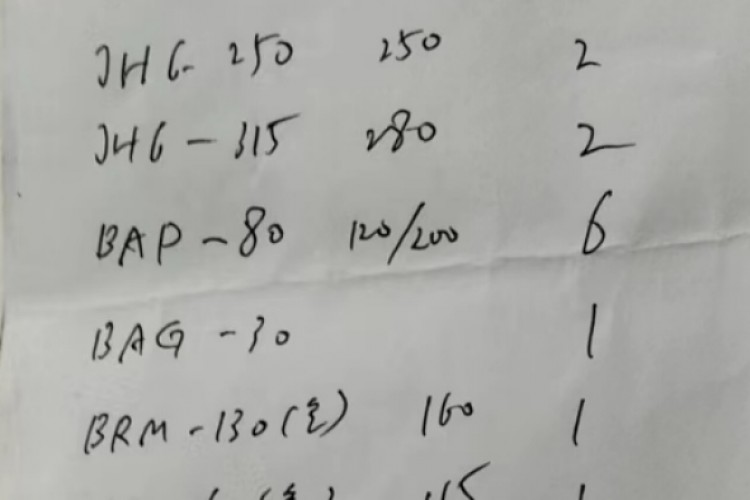 JHG-250 250 2
JHG-315 280 2
BAP-80 120/200 6
BAG-30 1
BRM-130() 160 1